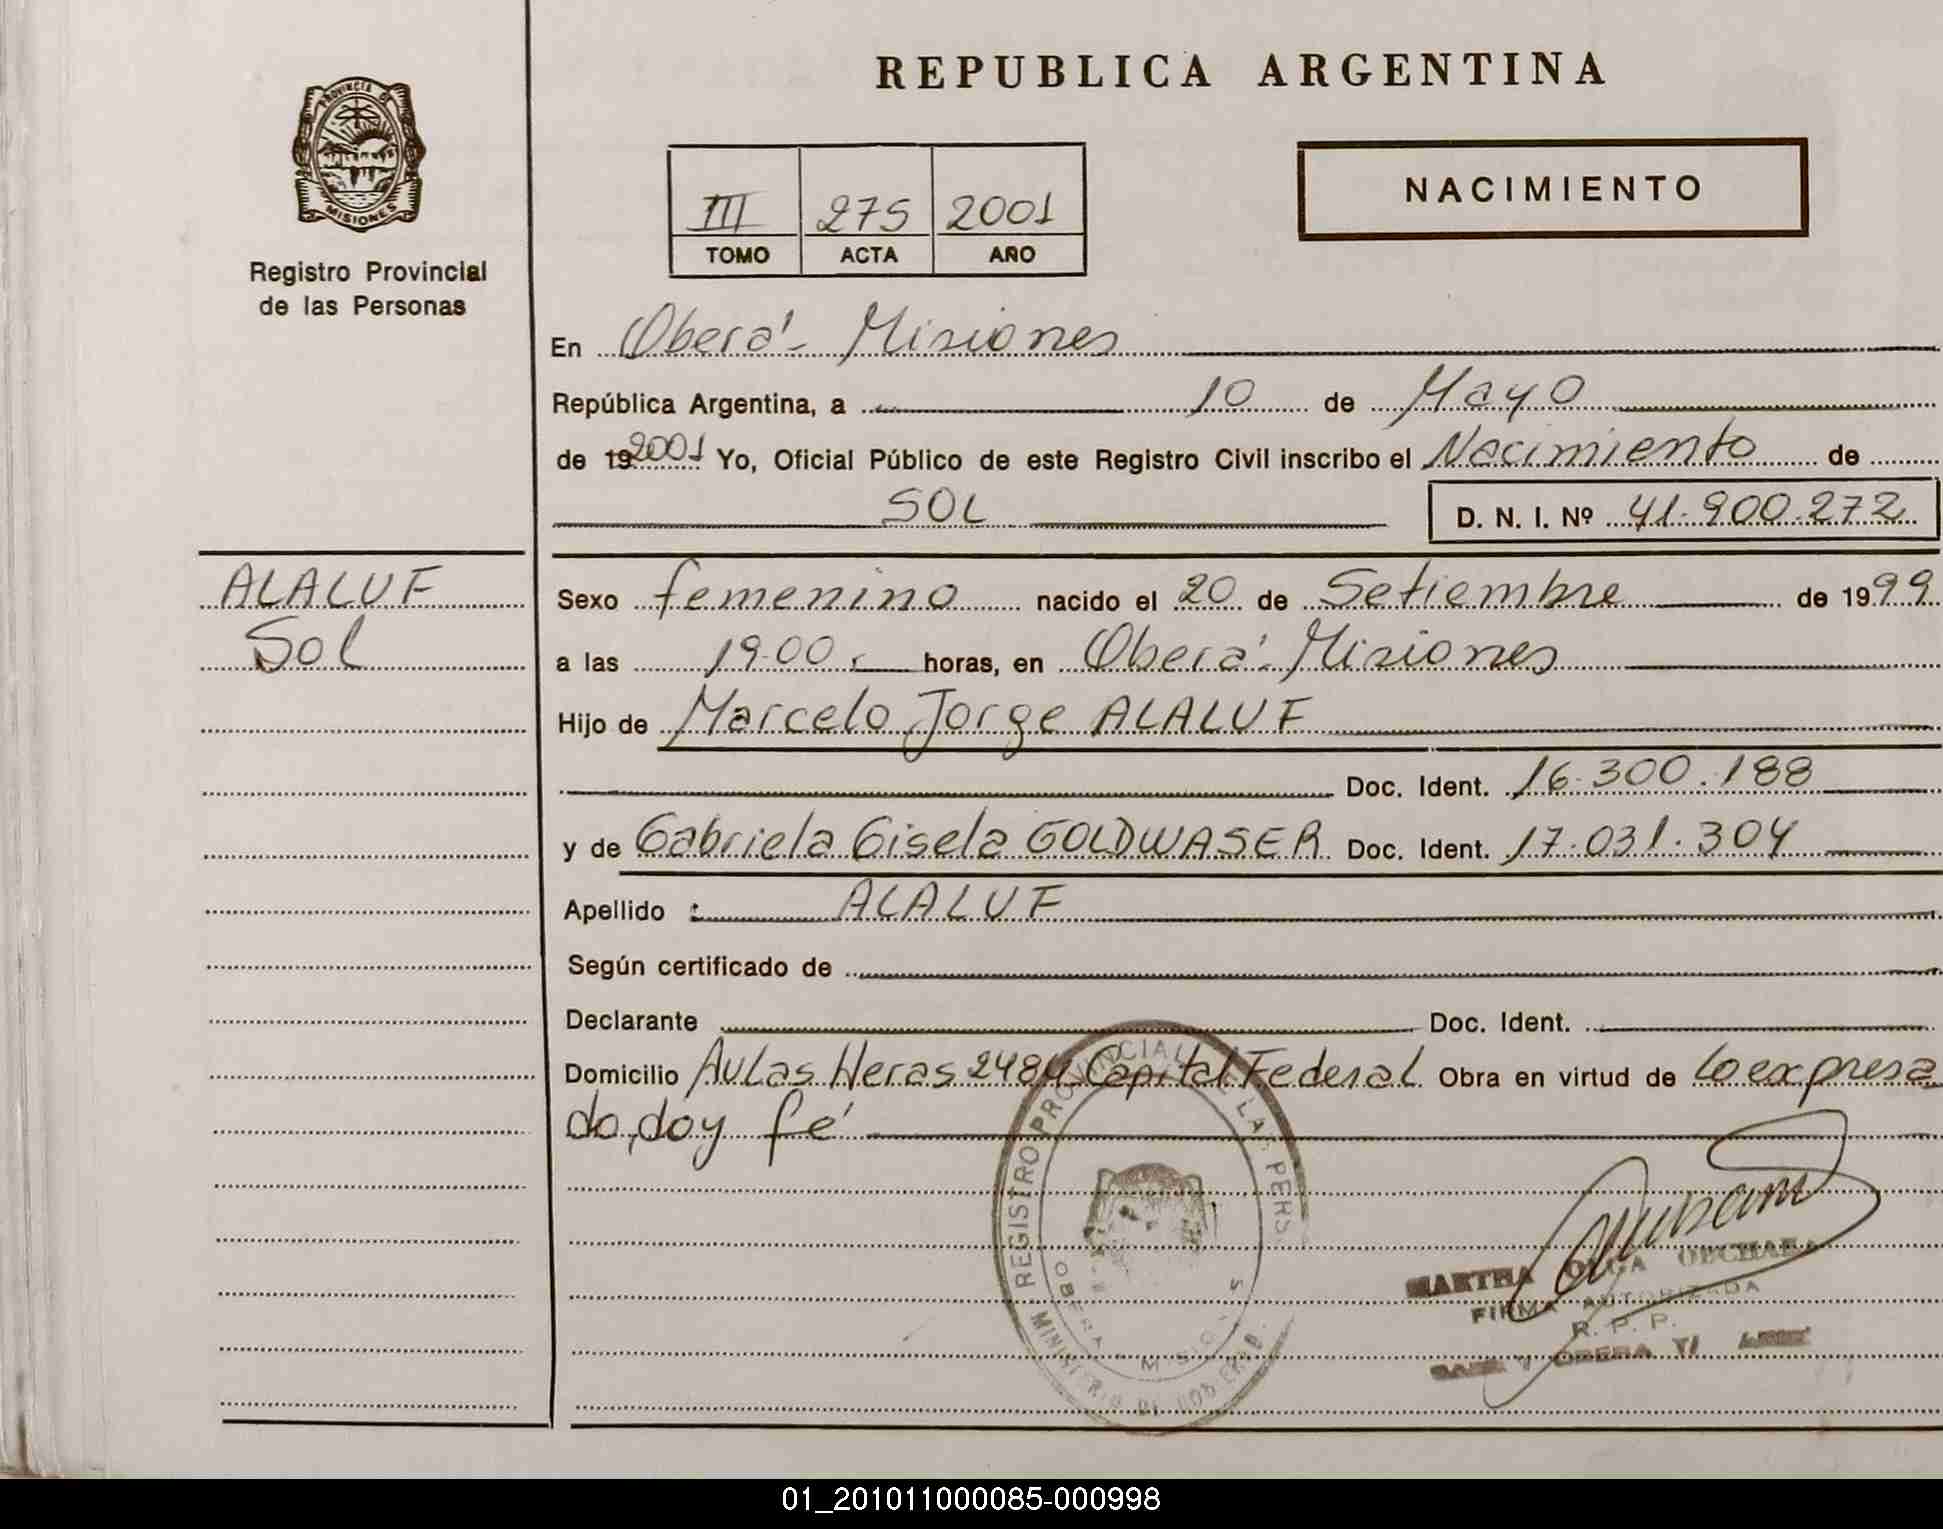 REPUBLICA ARGENTINA
PROVINCIA DE
MISIONES
Registro Provincial
de las Personas
III 275 2001
TOMO ACTA AÑO
NACIMIENTO
En Oberá - Misiones
República Argentina, a 10 de Mayo
de 19 2001 Yo, Oficial Público de este Registro Civil inscribo el Nacimiento de
SOL
D. N. I. Nº 41.900.272
ALALUF
Sol
Sexo femenino nacido el 20 de Setiembre de 1999
a las 19.00 horas, en Oberá - Misiones
Hijo de Marcelo Jorge ALALUF
Doc. Ident. 16.300.188
y de Gabriela Gisela GOLDWASER Doc. Ident. 17.031.304
Apellido : ALALUF
Según certificado de
Declarante Doc. Ident.
Domicilio Av Las Heras 2484 Capital Federal Obra en virtud de lo expresa
do, doy fé
REGISTRO PROVINCIAL DE LAS PERS.
OBERA - MISIONES
MINISTERIO DE GOBIERNO
MARTHA OLGA
FIRMA AUTORIZADA
R. P. P.
OBERA
01_201011000085-000998